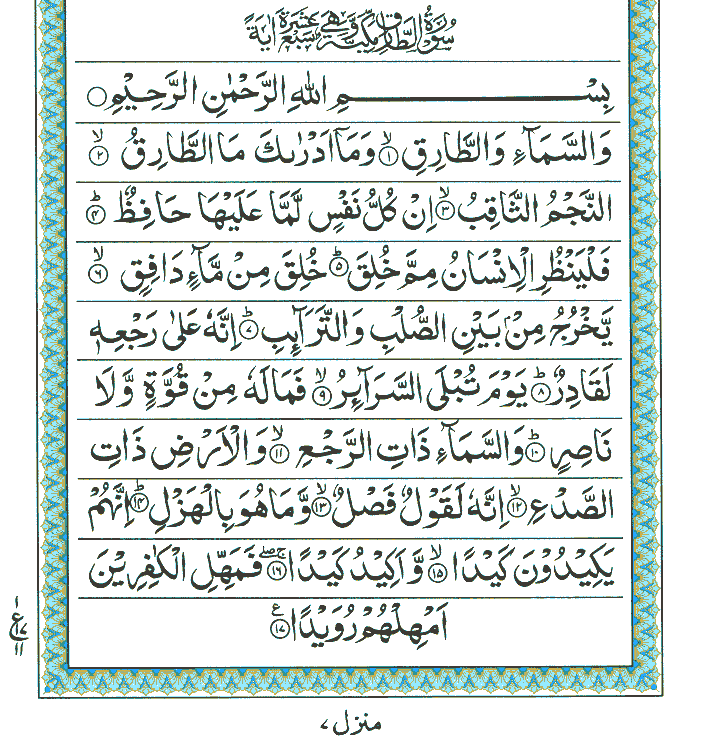 سُوْرَةُ الطَّارِقِ مَكِّيَّةٌ وَّهِيَ سَبْعَ عَشَرَةَ اٰيَةً
بِسْمِ اللّٰهِ الرَّحْمٰنِ الرَّحِيْمِ ○
وَالسَّمَآءِ وَالطَّارِقِ ۙ﴿۱﴾ وَمَاۤ اَدْرٰىكَ مَا الطَّارِقُ ۙ﴿۲﴾
النَّجْمُ الثَّاقِبُ ۙ﴿۳﴾ اِنْ كُلُّ نَفْسٍ لَّمَّا عَلَيْهَا حَافِظٌ ؕ﴿۴﴾
فَلْيَنْظُرِ الْاِنْسَانُ مِمَّ خُلِقَ ؕ﴿۵﴾ خُلِقَ مِنْ مَّآءٍ دَافِقٍ ۙ﴿۶﴾
يَّخْرُجُ مِنْۢ بَيْنِ الصُّلْبِ وَالتَّرَآئِبِ ؕ﴿۷﴾ اِنَّهٗ عَلٰى رَجْعِهٖ
لَقَادِرٌ ؕ﴿۸﴾ يَوْمَ تُبْلَى السَّرَآئِرُ ۙ﴿۹﴾ فَمَالَهٗ مِنْ قُوَّةٍ وَّلَا
نَاصِرٍ ؕ﴿۱۰﴾ وَالسَّمَآءِ ذَاتِ الرَّجْعِ ۙ﴿۱۱﴾ وَالْاَرْضِ ذَاتِ
الصَّدْعِ ۙ﴿۱۲﴾ اِنَّهٗ لَقَوْلٌ فَصْلٌ ۙ﴿۱۳﴾ وَّمَا هُوَ بِالْهَزْلِ ؕ﴿۱۴﴾ اِنَّهُمْ
يَكِيْدُوْنَ كَيْدًا ۙ﴿۱۵﴾ وَّاَكِيْدُ كَيْدًا ۚۖ﴿۱۶﴾ فَمَهِّلِ الْكٰفِرِيْنَ
اَمْهِلْهُمْ رُوَيْدًا ﴿۱۷﴾ ع
۱
ع ۱۷
۱۱
منزل ۷